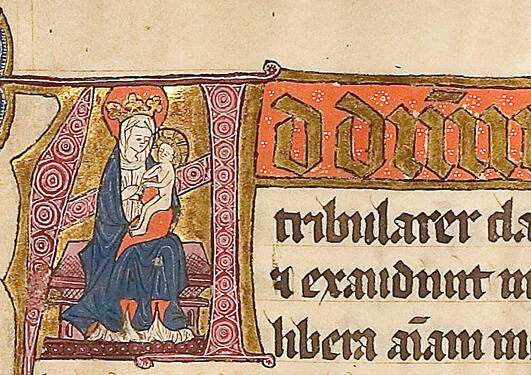 Ad dn̄m
tribularer cla
⁊ exaudiuit m
libera aīam me